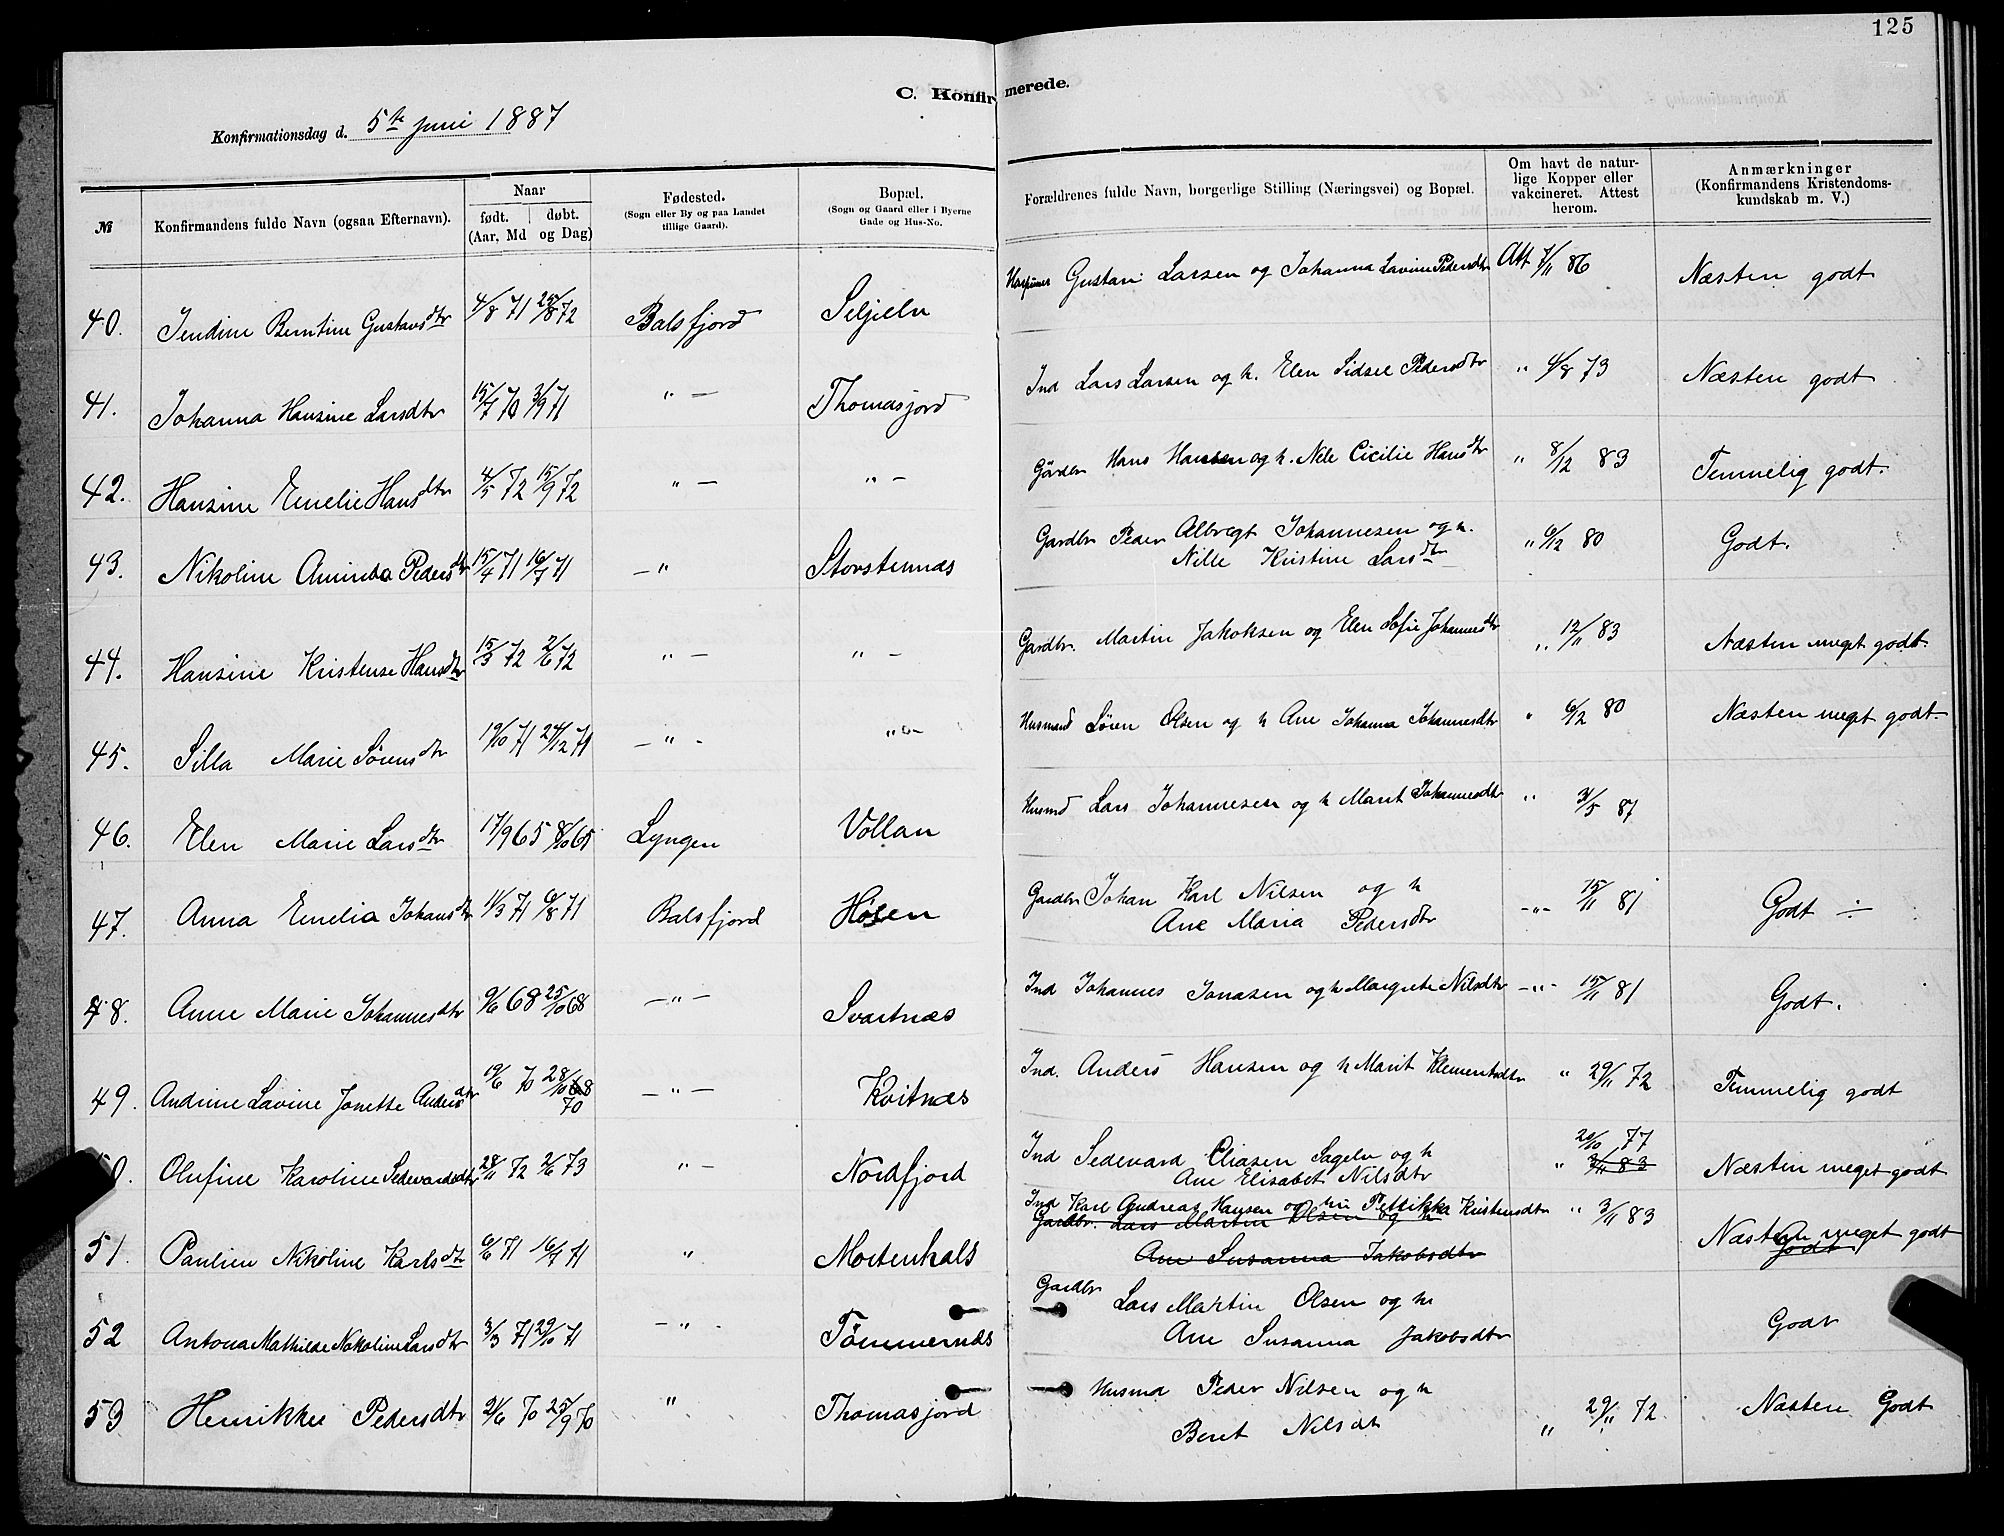 125
C. Konfirmerede.
Konfirmationsdag d. 5te Juni 1887
№ | Konfirmandens fulde Navn (ogsaa Efternavn). | Naar født. døbt. (Aar, Md og Dag) | Fødested. (Sogn eller By og paa Landet tillige Gaard). | Bopæl. (Sogn og Gaard eller i Byerne Gade og Hus-No. | Forældrenes fulde Navn, borgerlige Stilling (Næringsvei) og Bopæl. | Om havt de naturlige Kopper eller vakcineret. Attest herom. | Anmærkninger (Konfirmandens Kristendomskundskab m. V.)
40. | Jendine Berntine Gustavsdtr | 4/8 71 | 25/8 72 | Balsfjord | Seljelv | Gustav Larsen og Johanna Lavine Pedersdtr | Att 7/11 86 | Næsten godt
41. | Johanna Hansine Larsdtr | 15/7 70 | 3/9 71 | " — | Thomasjord | Ind Lars Larsen og h. Elen Sidsel Pedersdtr | " 4/8 73 | Næsten godt
42. | Hansine Emelie Hansdtr | 4/5 72 | 15/9 72 | " — | " — | Gårdbr Hans Hansen og h. Nele Cicilie Hansdtr | " 8/12 83 | Temmelig godt.
43. | Nikoline Aminda Pedersdtr | 15/4 71 | 16/7 71 | — " | Storstennæs | Gardbr Peder Albregt Johannesen og h.
Nille Kristine Larsdtr | " 6/12 80 | Godt.
44. | Hansine Kristense Hansdtr | 15/3 72 | 2/6 72 | " — | " — | Gardbr. Martin Jakobsen og Elen Sofie Johannesdtr | " 12/11 83 | Næsten meget godt.
45. | Silla Marie Sørensdtr | 19/10 71 | 27/12 71 | — " - | " — | Husmand Søren Olsen og h Ane Johanna Johannesdtr | " 6/12 80 | Næsten meget godt.
46. | Elen Marie Larsdtr | 17/9 65 | 8/10 65 | Lyngen | Vollan | Husmd Lars Johannesen og h Marit Johannesdtr | " 3/5 87
47. | Anna Emelia Johansdtr | 11/3 71 | 6/8 71 | Balsfjord | Høsen | Gardbr Johan Karl Nilsen og h
Ane Maria Pedersdtr | — " — 15/11 81 | Godt ÷
48. | Anne Marie Johannesdtr | 9/6 68 | 25/10 68 | — " — | Svartnæs | Ind Johannes Jonasen og h Margrete Nilsdtr | — " — 15/11 81 | Godt.
49. | Andrine Lavine Jonette Andersdtr | 19/6 70 | 28/10 68 70 | — " — | Kvitnæs | Ind. Anders Hansen og h Marit Klementsdtr | " 29/11 72 | Temmelig godt
0. | Olufine Karoline Sedevardsdtr | 28/11 72 | 2/6 73 | " — | Nordfjord | Ind Sedevard Eliasen Sagelv og h
Ane Elisabet Nilsdtr | 20/10 77 " 3/11 83 | Næsten meget godt
51. | Paulien Nikoline Karlsdtr | 6/6 71 | 16/7 71 | " | Mortenhals | Ind Karl Andreas Hansen og hu Petrikka Kristensdtr
Gardbr. Lars Martin Olsen og h
Ane Susanna Jakobsdtr | " 3/11 83 | Næsten meget godt
Godt
52 | Antona Mathilde Nikoline Larsdtr | 3/3 71 | 29/10 71 | — " - | Tømmernæs | Gardbr Lars Martin Olsen og h
Ane Susanna Jakobsdtr | Godt
53 | Henrikke Pedersdtr | 2/6 70 | 25/9 70 | " | Thomasjord | Husmd Peder Nilsen og h
Beret Nilsdt | " 29/11 72. | Næsten Godt